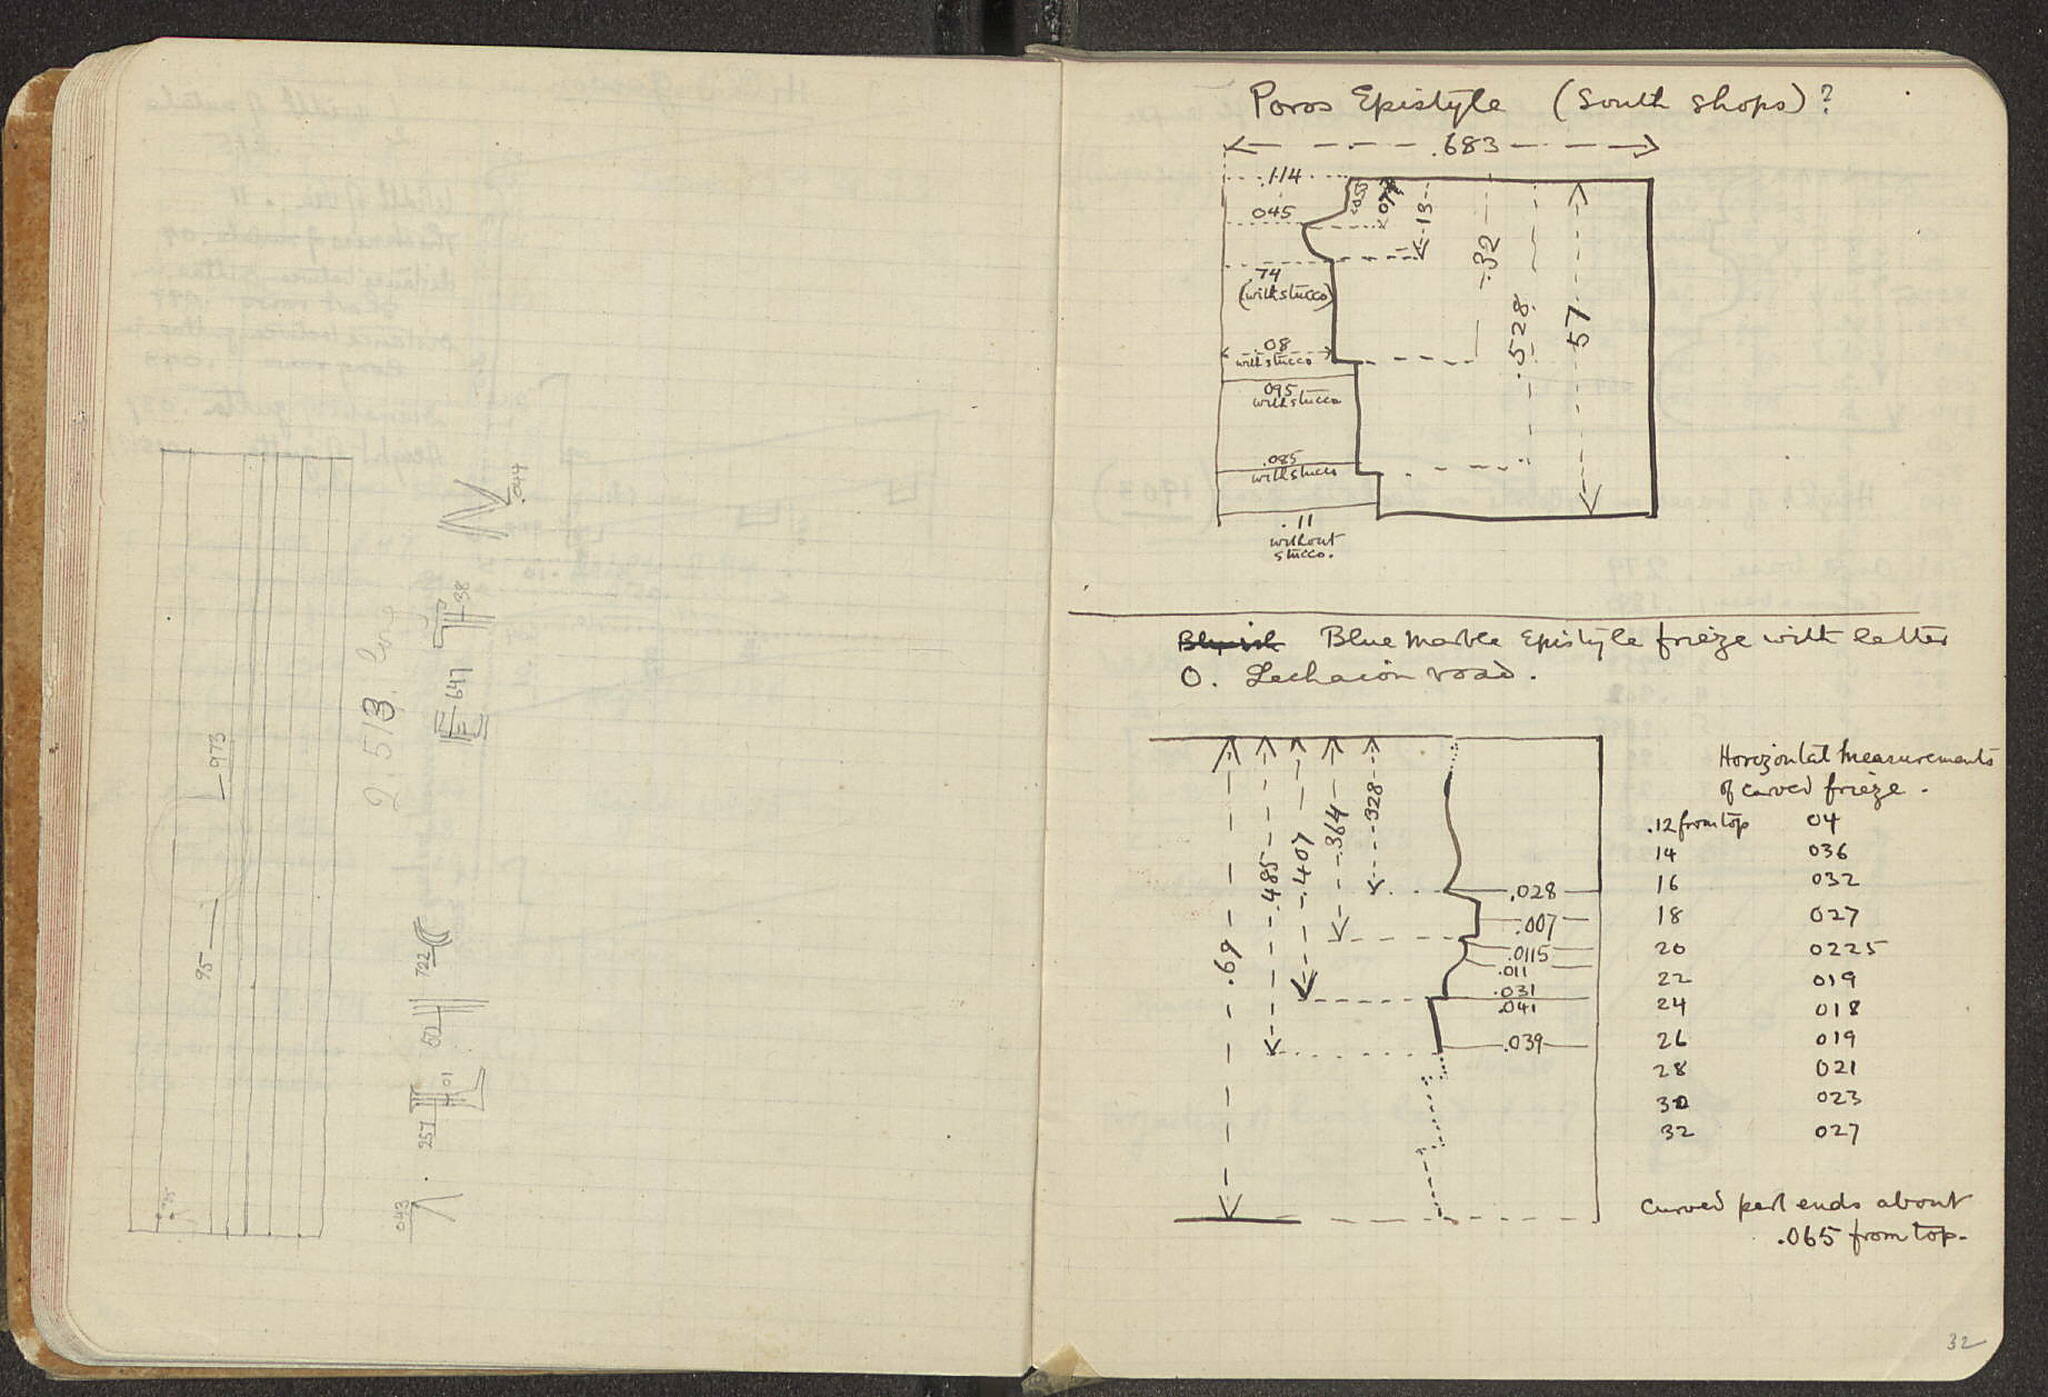 .044
38
647
2.513 long
973
95
722
502
401
257
043
Poros Epistyle (South shops)?
.683
.114
.074
045
.13
.32
.74
(with stucco)
.528
.57
.08
with stucco
095
with stucco
.085
with stucco
.11
without
stucco.
Bluish Blue Marble Epistyle frieze with letter
O. Lechaion road.
Horizontal measurements
of curved frieze.
.12 from top 04
14 036
16 032
18 027
20 0225
22 019
24 018
26 019
28 021
30 023
32 027
.328
.364
.407
.485
.69
.028
.007
.0115
.011
.031
.041
.039
Curved part ends about
.065 from top.
32